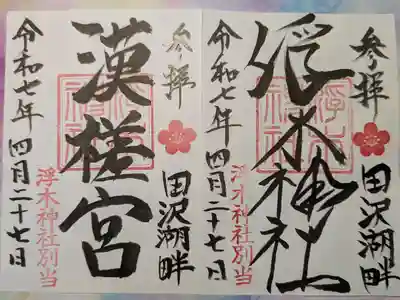 参拝
田沢湖畔
浮木神社
令和七年四月二十七日
浮木神社別当
参拝
田沢湖畔
漢槎宮
令和七年四月二十七日
浮木神社別当